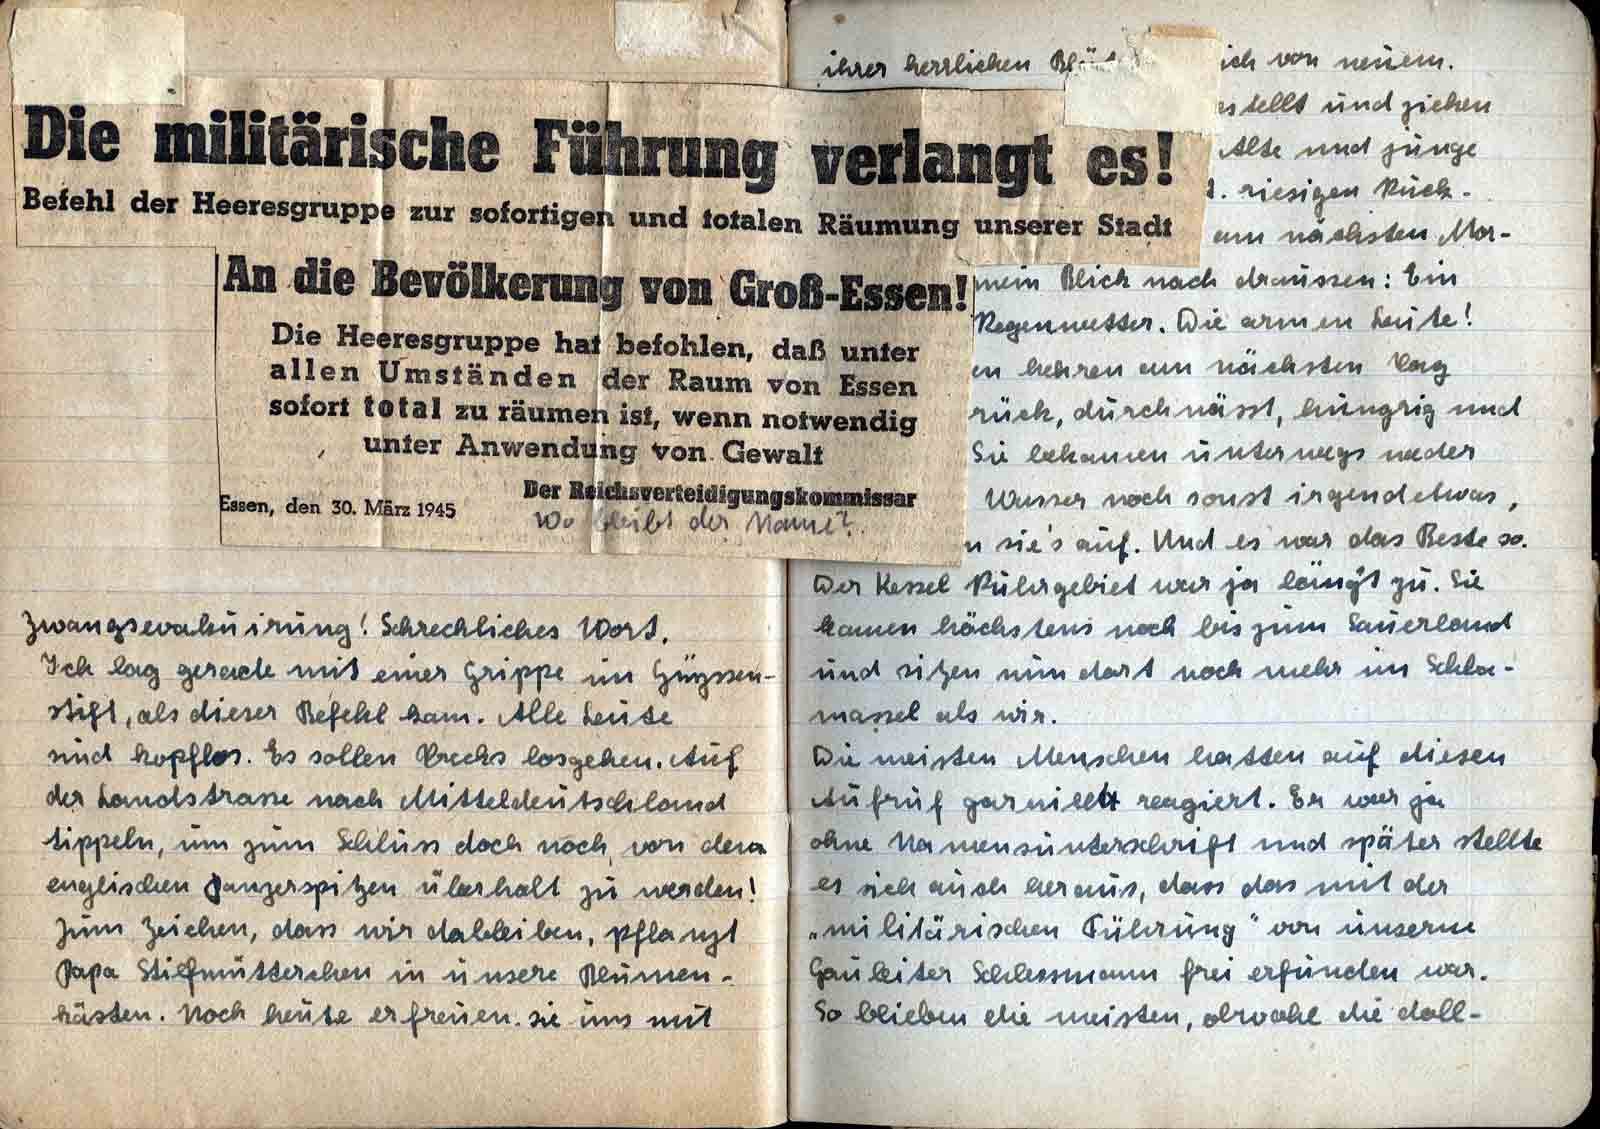 Die militärische Führung verlangt es!
Befehl der Heeresgruppe zur sofortigen und totalen Räumung unserer Stadt
An die Bevölkerung von Groß-Essen!
Die Heeresgruppe hat befohlen, daß unter
allen Umständen der Raum von Essen
sofort total zu räumen ist, wenn notwendig
unter Anwendung von Gewalt
Der Reichsverteidigungskommissar
Essen, den 30. März 1945
Wo bleibt der Name?
Zwangsevakuirung! Schreckliches Wort.
Ich lag gerade mit einer Grippe im Hüyssen-
stift, als dieser Befehl kam. Alle Leute
sind kopflos. Es sollen Trecks losgehen. Auf
der Landstrasse nach Mitteldeutschland
tippeln, um zum Schluss doch noch von den
englischen Panzerspitzen überholt zu werden!
Zum Zeichen, dass wir dableiben, pflanzt
Papa Stiefmütterchen in unsere Blumen-
kästen. Noch heute erfreuen sie uns mit
ihrer herrlichen ich von neuem.
estellt und ziehen
Alte und junge
riesigen Rück-
am nächsten Mor-
mein Blick nach draussen: Ein
Regenwetter. Die armen Leute!
en kehren am nächsten Tag
rück, durchnässt, hungrig und
Sie bekamen unterwegs weder
Wasser noch sonst irgendetwas,
n sie's auf. Und es war das Beste so.
Der Kessel Ruhrgebiet war ja längst zu. Sie
kamen höchstens noch bis zum Sauerland
und sitzen nun dort noch mehr im Schla-
massel als wir.
Die meisten Menschen hatten auf diesen
Aufruf garnicht reagiert. Er war ja
ohne Namensunterschrift und später stellte
es sich auch heraus, dass das mit der
„militärischen Führung" von unserm
Gauleiter Schlessmann frei erfunden war.
So blieben die meisten, obwohl die doll-